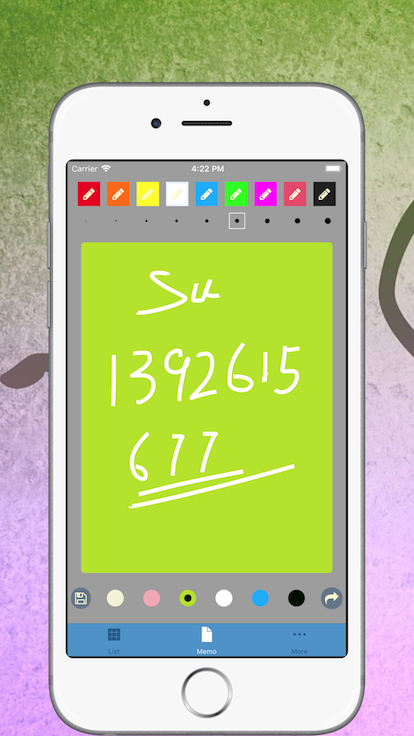 Carrier 4:22 PM
Su
1392615
677
List Memo More